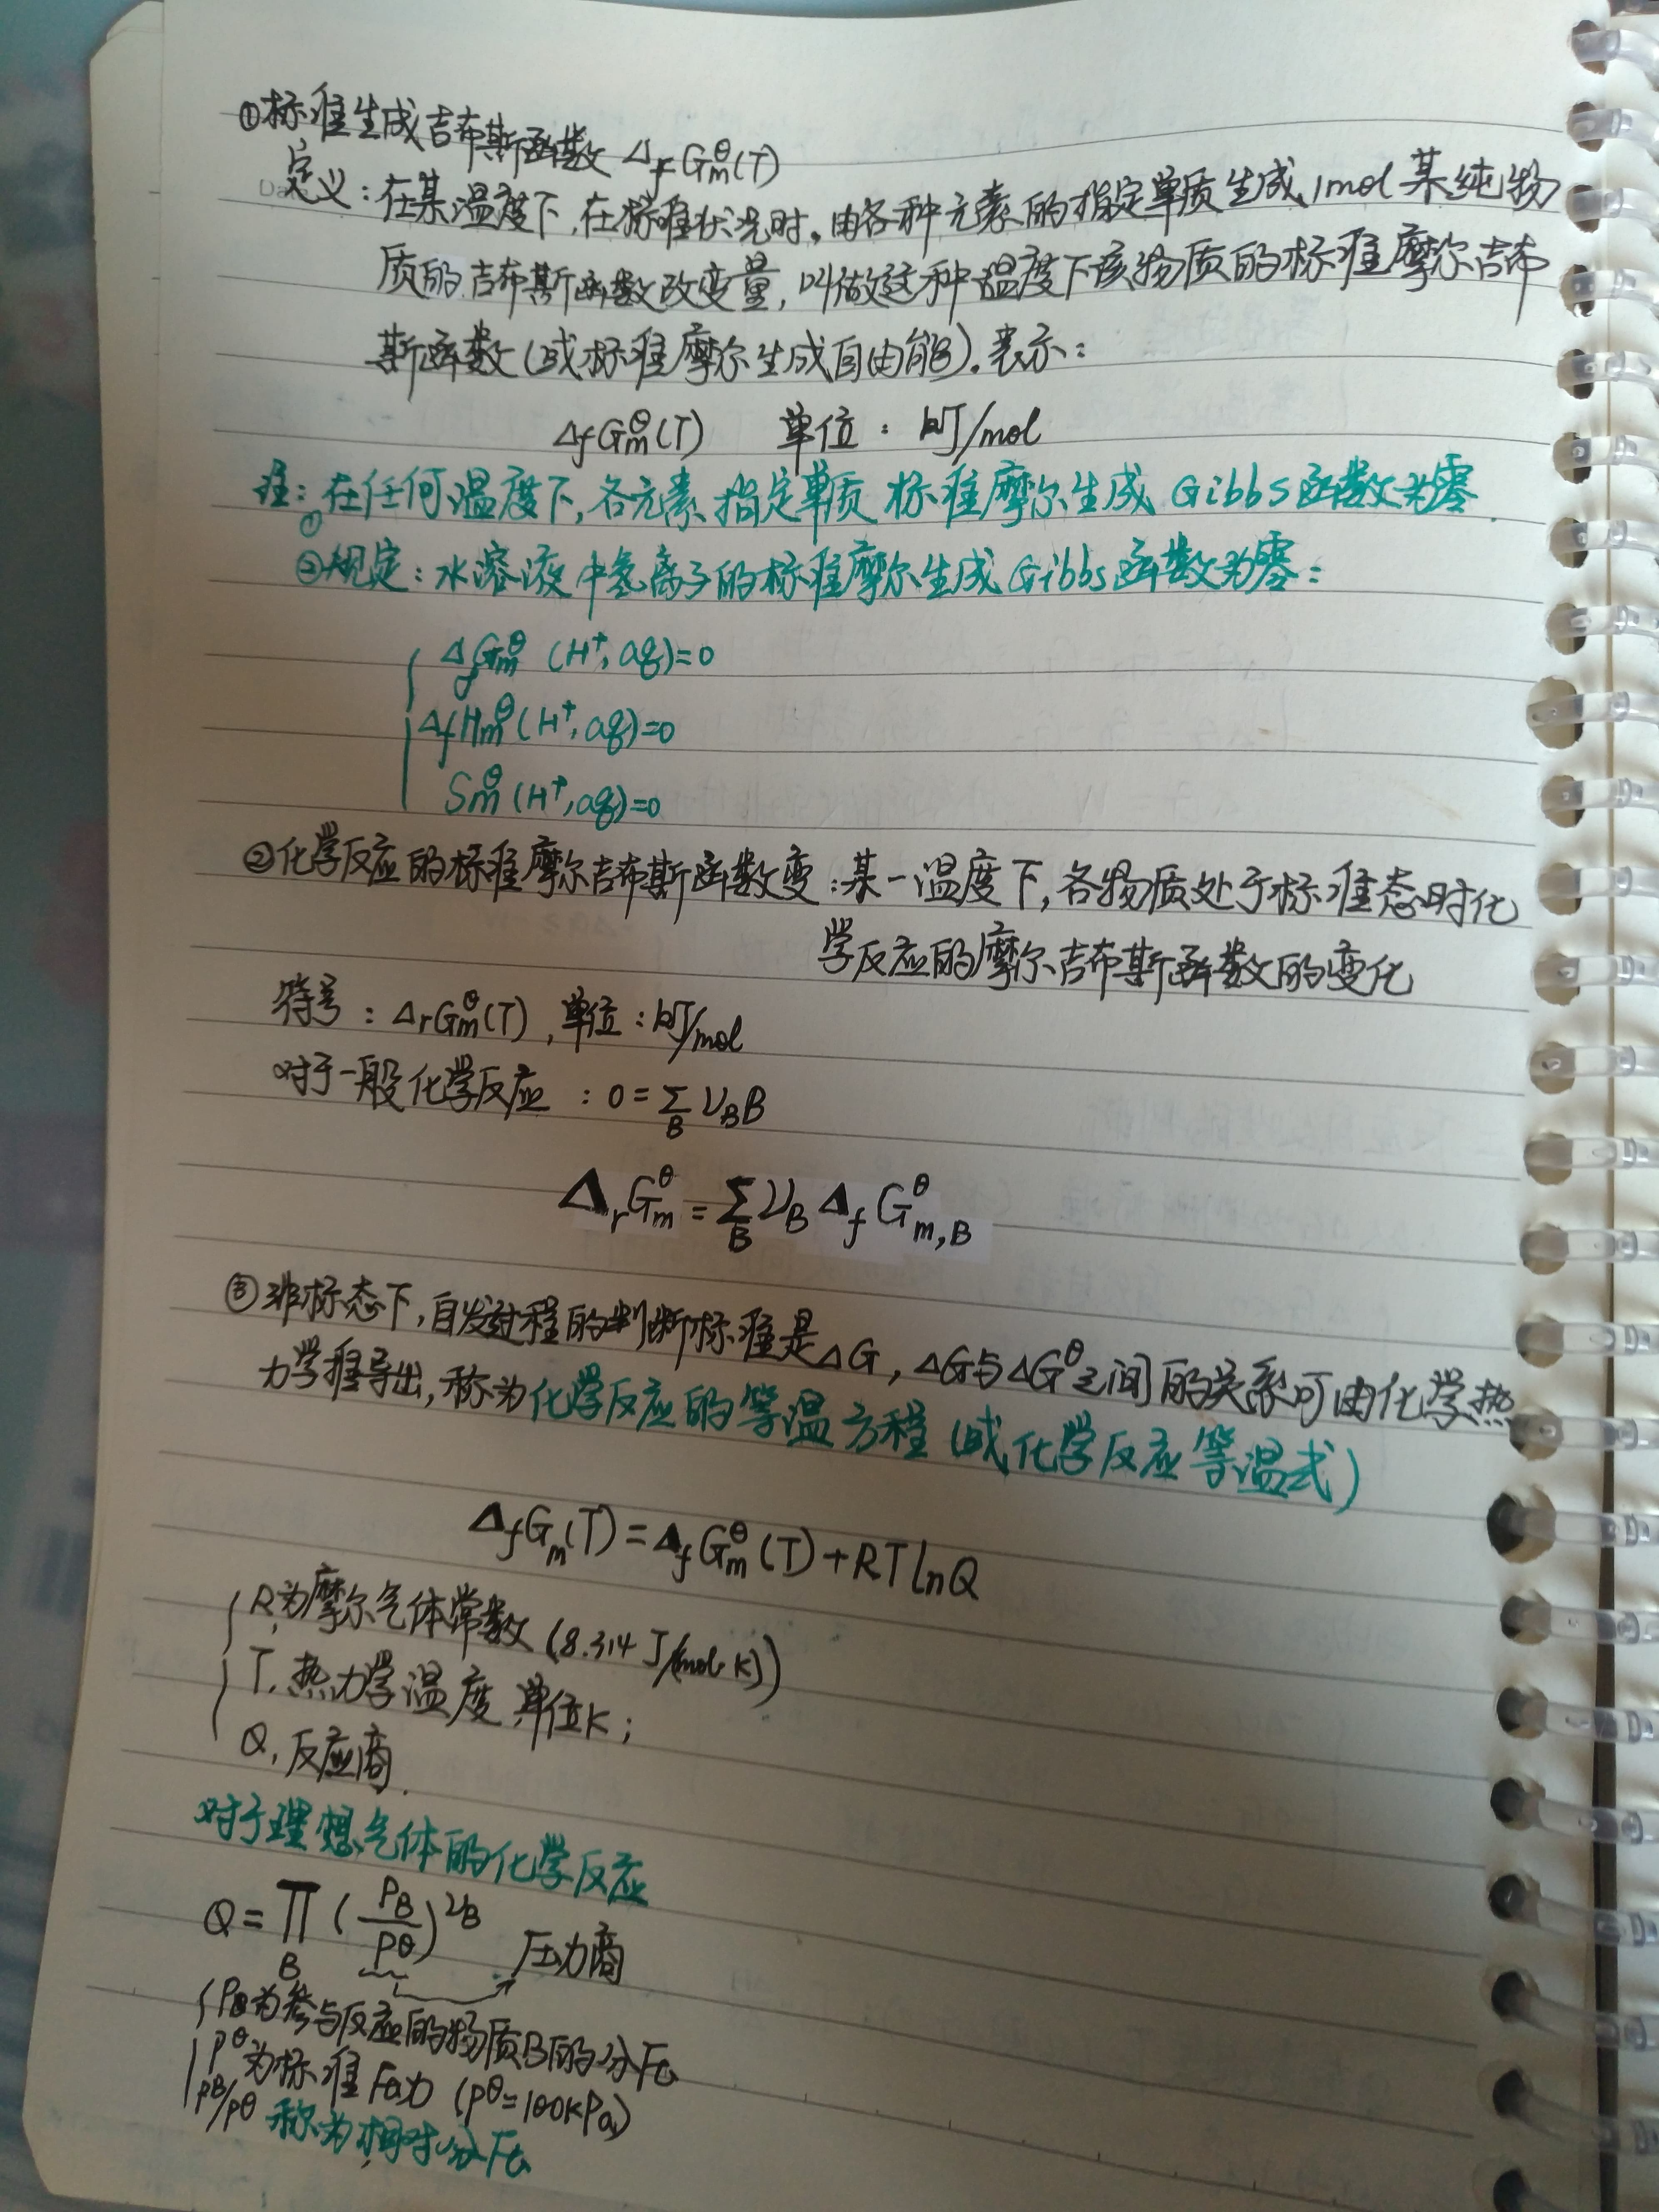 ①标准生成吉布斯函数 ΔfGmᶿ(T)
定义：在某温度下，在标准状况时，由各种元素的指定单质生成1mol某纯物
质的吉布斯函数改变量，叫做这种温度下该物质的标准摩尔吉布
斯函数(或标准摩尔生成自由能)。表示：
ΔfGmᶿ(T) 单位：kJ/mol
注：①在任何温度下，各元素指定单质标准摩尔生成Gibbs函数为零
②规定：水溶液中氢离子的标准摩尔生成Gibbs函数为零：
ΔfGmᶿ (H⁺, aq)=0
ΔfHmᶿ (H⁺, aq)=0
Smᶿ (H⁺, aq)=0
②化学反应的标准摩尔吉布斯函数变：某一温度下，各物质处于标准态时化
学反应的摩尔吉布斯函数的变化
符号：ΔrGmᶿ(T)，单位：kJ/mol
对于一般化学反应：0=∑B νB B
ΔrGmᶿ = ∑B νB ΔfGᶿm,B
③非标态下，自发过程的判断标准是ΔG，ΔG与ΔGᶿ之间的关系可由化学热
力学推导出，称为化学反应的等温方程(或化学反应等温式)
ΔfGm(T)=ΔfGmᶿ(T)+RTlnQ
R，为摩尔气体常数(8.314 J/(mol·K))
T，热力学温度 单位K；
Q，反应商.
对于理想气体的化学反应
Q=∏B (PB/Pθ)^νB 压力商
PB为参与反应的物质B的分压
Pᶿ为标准压力 (Pᶿ=100kPa)
PB/Pθ 称为相对分压